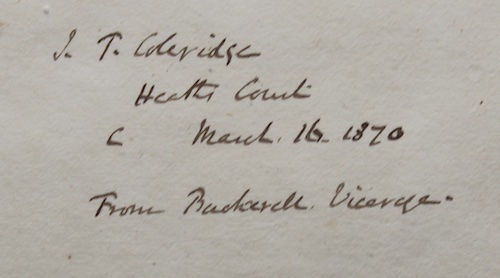 J. T. Coleridge
Heaths Court
C March. 16. 1870
From Buckerell. Vicarage.